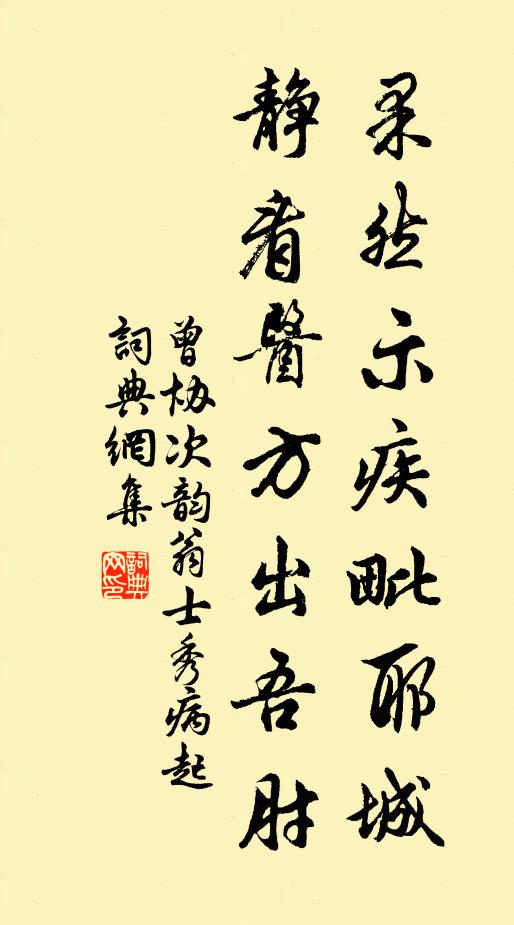 果然示疾毗耶城
静看醫方出吾肘
曾协次韵翁士秀病起
詞典網集
詞典网印